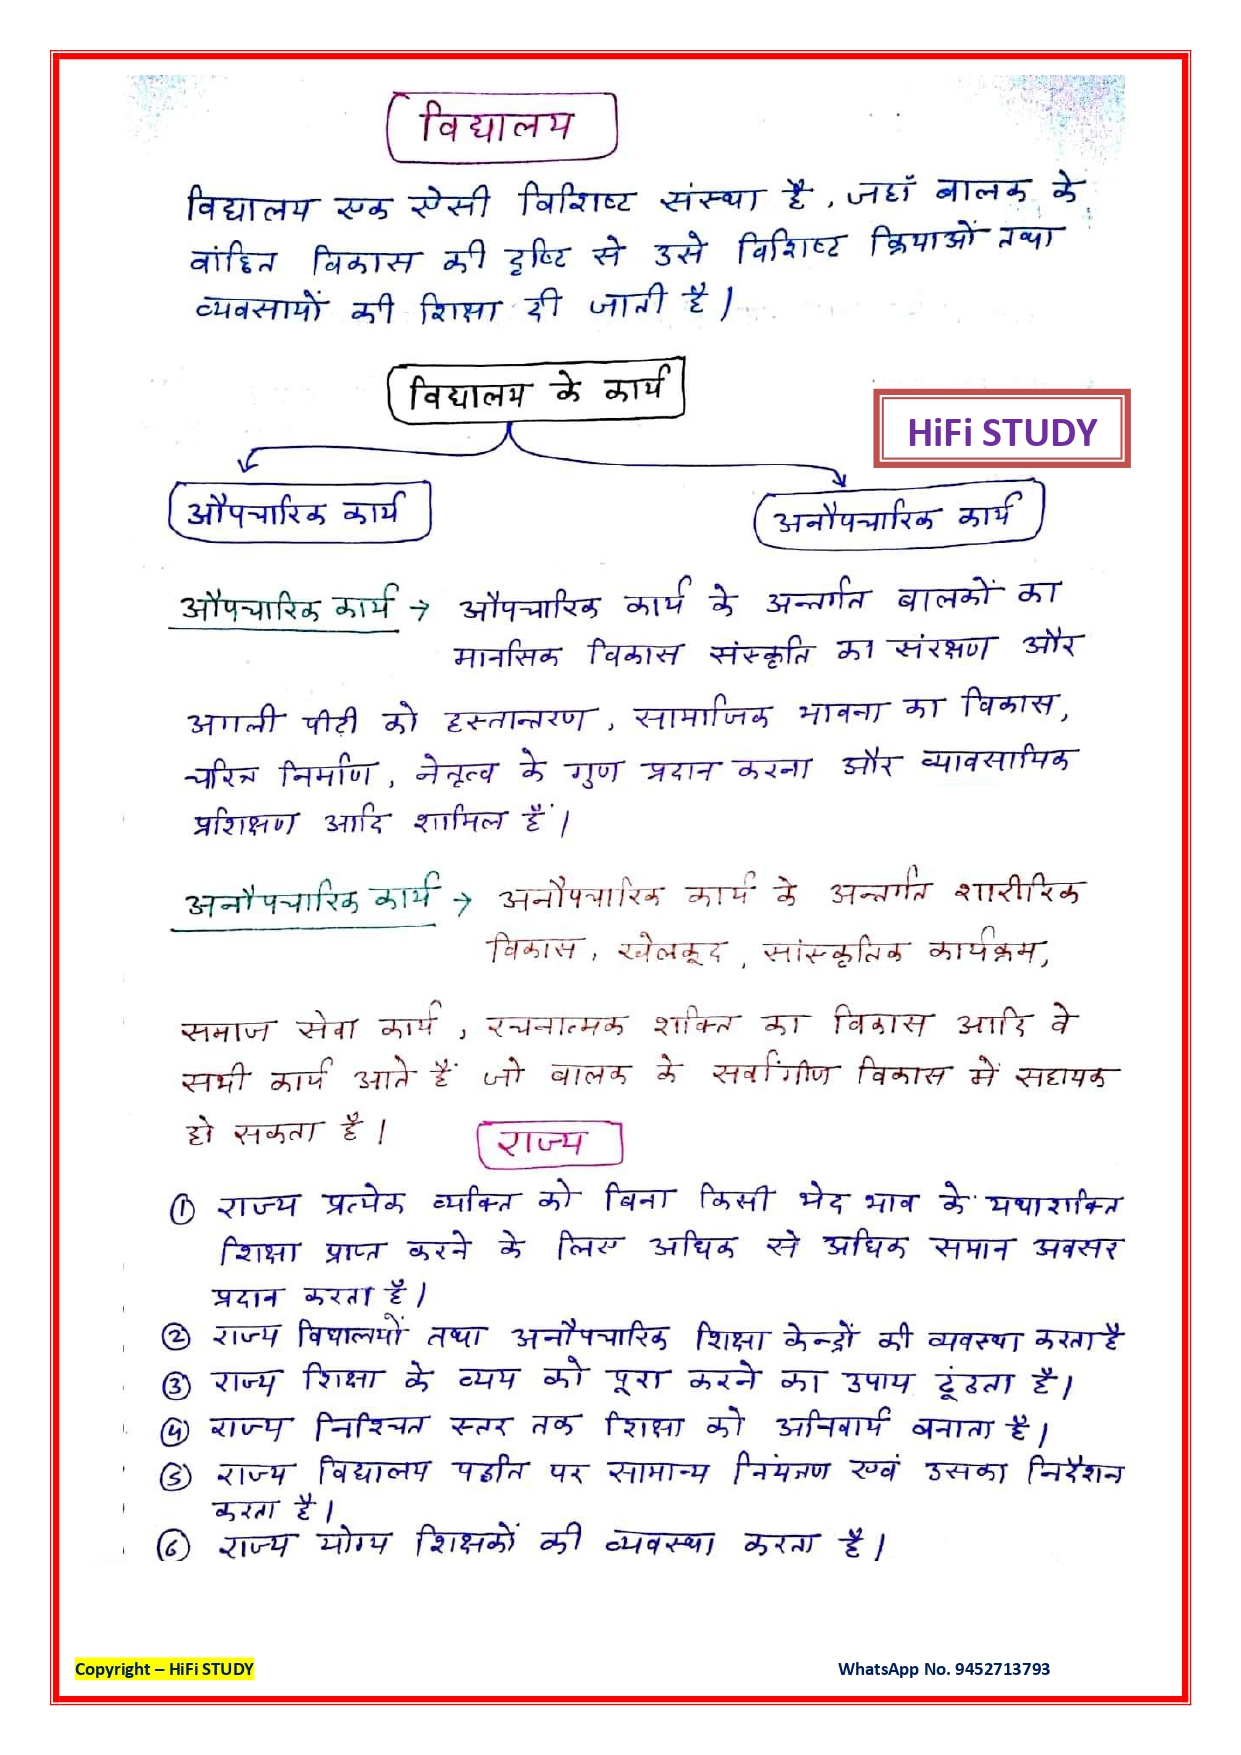 विद्यालय
विद्यालय एक ऐसी विशिष्ट संस्था है, जहाँ बालक के
वांछित विकास की दृष्टि से उसे विशिष्ट क्रियाओं तथा
व्यवसायों की शिक्षा दी जाती है।
विद्यालय के कार्य
HiFi STUDY
औपचारिक कार्य
अनौपचारिक कार्य
औपचारिक कार्य → औपचारिक कार्य के अन्तर्गत बालकों का
मानसिक विकास संस्कृति का संरक्षण और
अगली पीढ़ी को हस्तान्तरण, सामाजिक भावना का विकास,
चरित्र निर्माण, नेतृत्व के गुण प्रदान करना और व्यावसायिक
प्रशिक्षण आदि शामिल हैं।
अनौपचारिक कार्य → अनौपचारिक कार्य के अन्तर्गत शारीरिक
विकास, खेलकूद, सांस्कृतिक कार्यक्रम,
समाज सेवा कार्य, रचनात्मक शक्ति का विकास आदि वे
सभी कार्य आते हैं जो बालक के सर्वांगीण विकास में सहायक
हो सकता है।
राज्य
① राज्य प्रत्येक व्यक्ति को बिना किसी भेद भाव के यथाशक्ति
शिक्षा प्राप्त करने के लिए अधिक से अधिक समान अवसर
प्रदान करता है।
② राज्य विद्यालयों तथा अनौपचारिक शिक्षा केन्द्रों की व्यवस्था करता है
③ राज्य शिक्षा के व्यय को पूरा करने का उपाय ढूंढता है।
④ राज्य निश्चित स्तर तक शिक्षा को अनिवार्य बनाता है।
⑤ राज्य विद्यालय पद्धति पर सामान्य नियंत्रण एवं उसका निर्देशन
करता है।
⑥ राज्य योग्य शिक्षकों की व्यवस्था करता है।
Copyright – HiFi STUDY
WhatsApp No. 9452713793